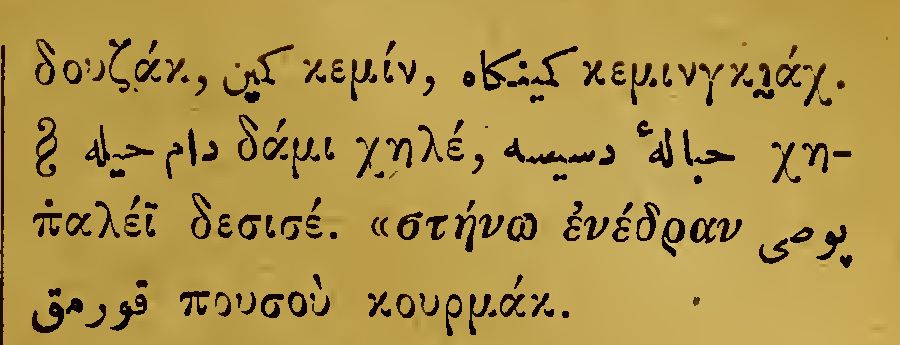 δουζάκ, كمين κεμίν, كمينكاه κεμινγκι̯άχ.
§ دام حيله δάμι χηλέ, حبالهٔ دسيسه χη-
π̇αλέϊ δεσισέ. «στήνω ἐνέδραν پوصى
قورمق πουσοὺ κουρμάκ.